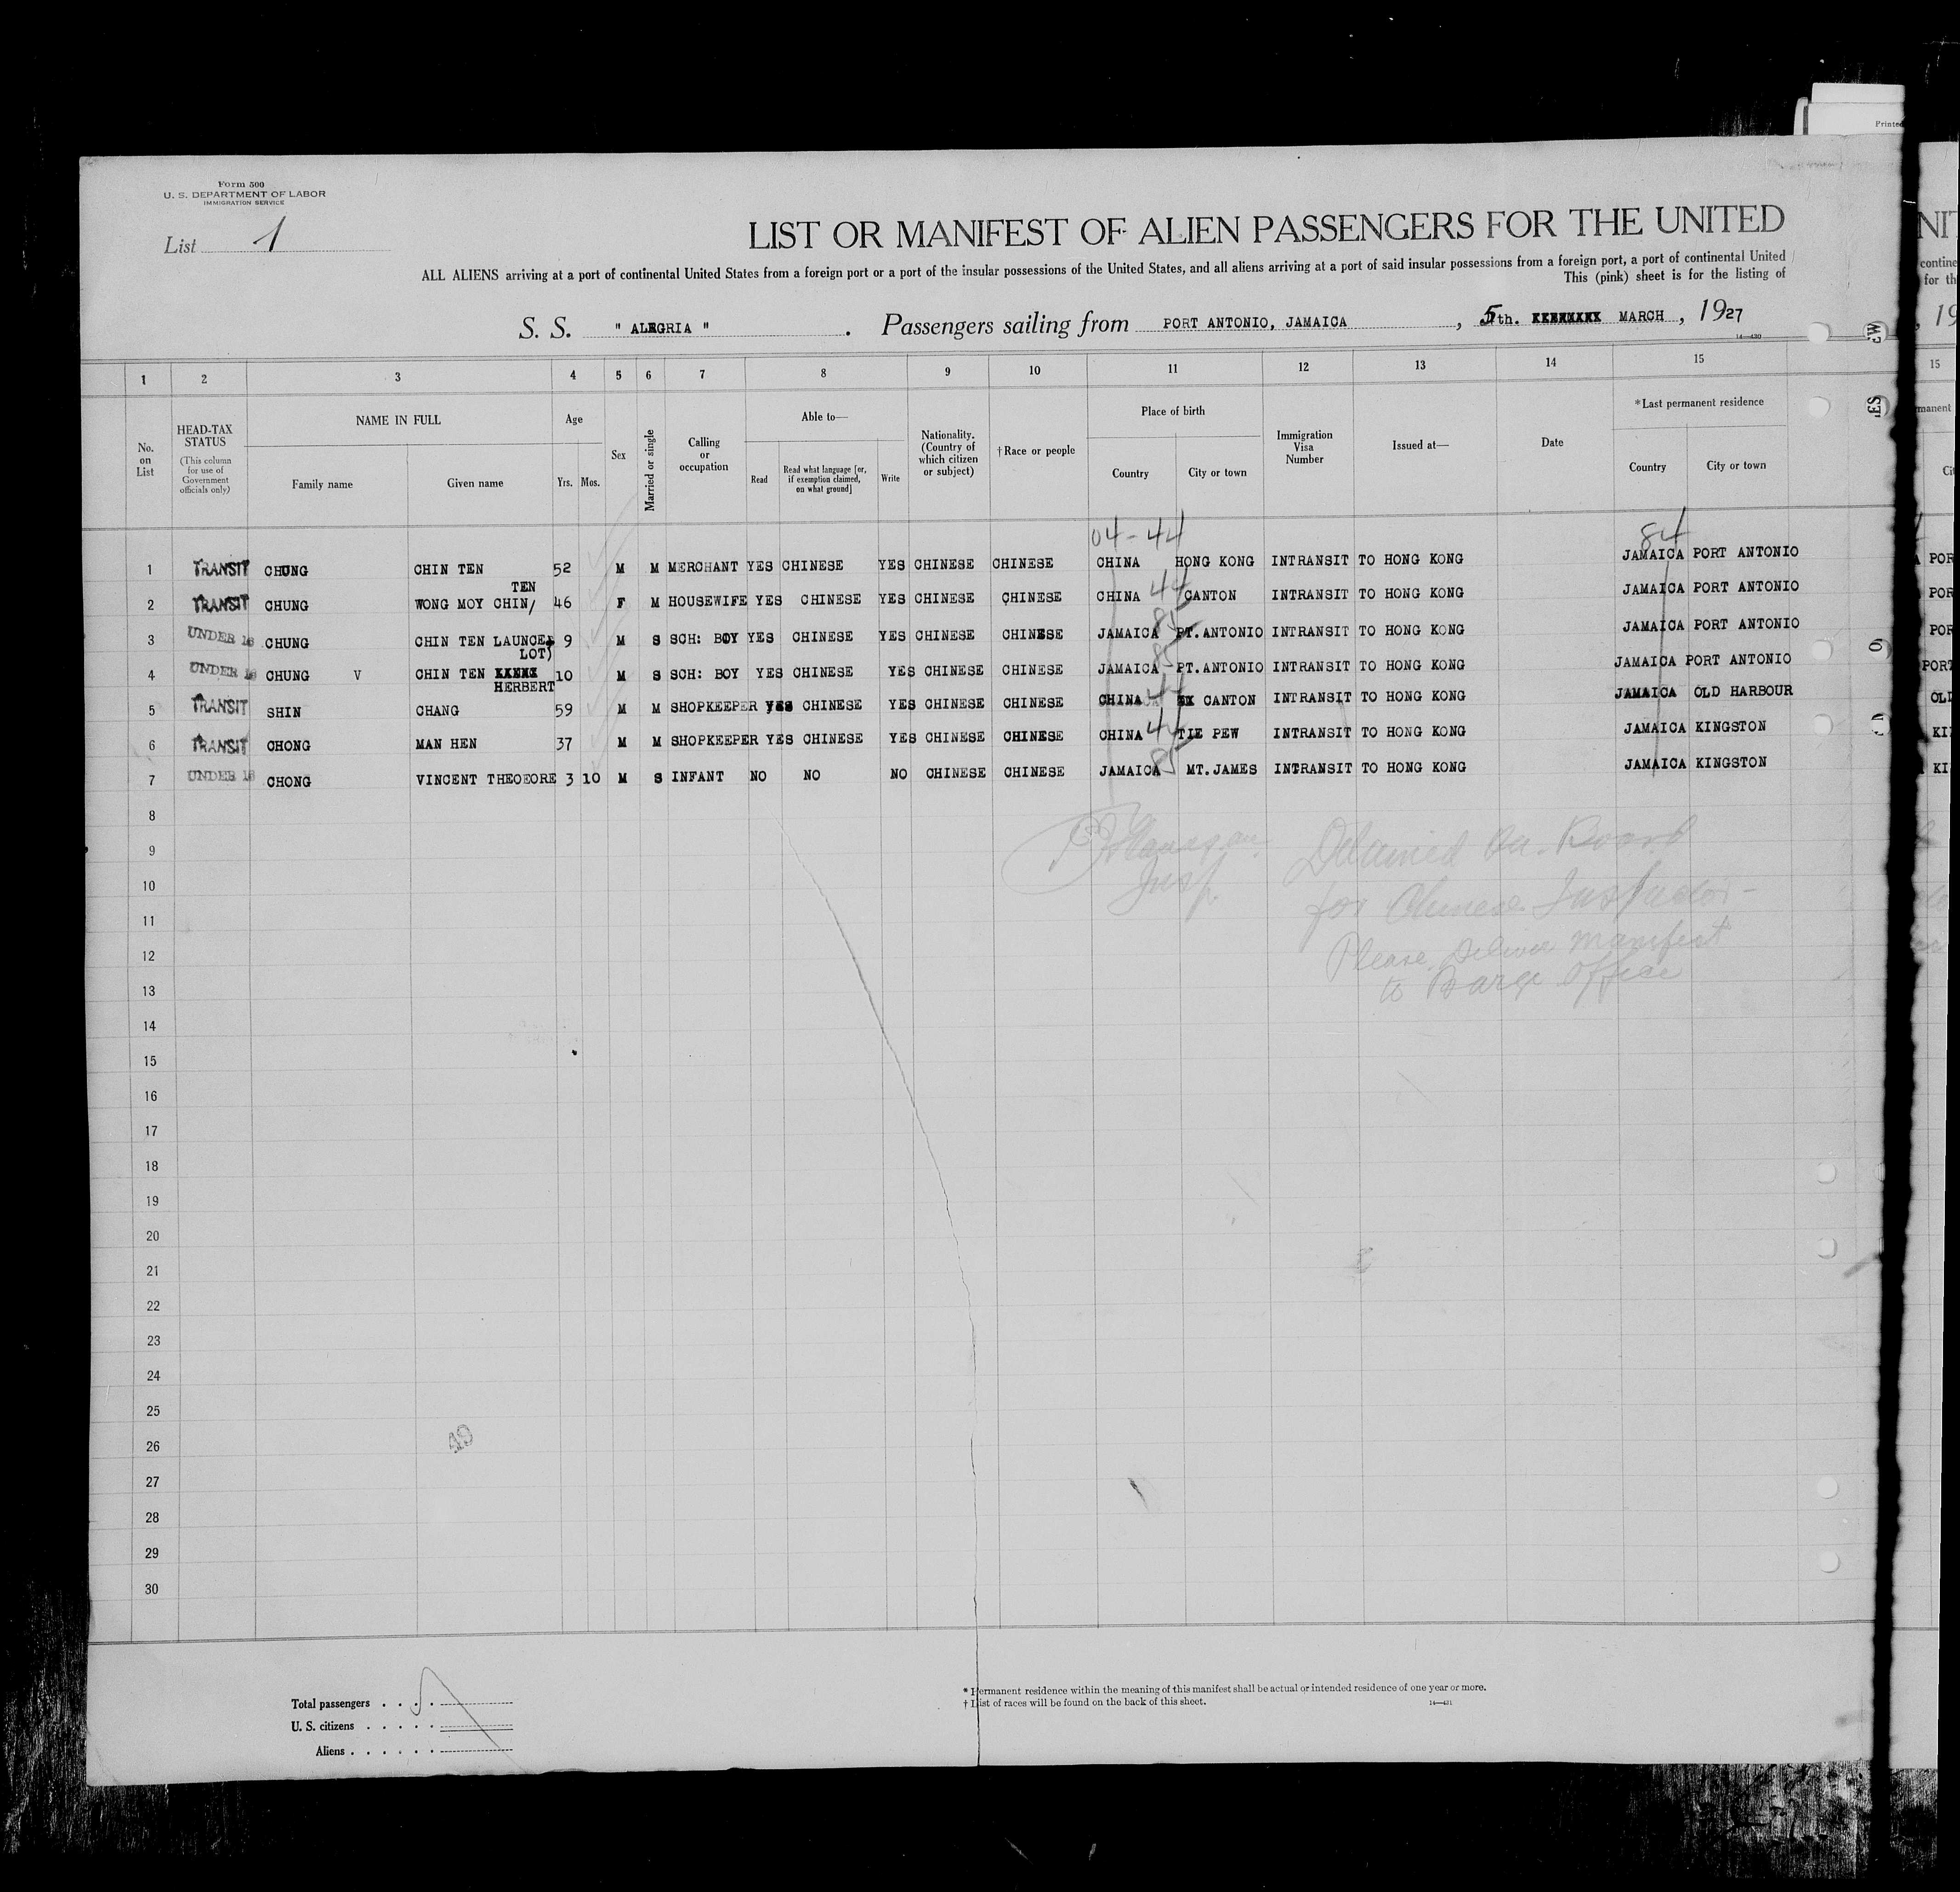 Printed
Form 500
U. S. DEPARTMENT OF LABOR
IMMIGRATION SERVICE
List 1
LIST OR MANIFEST OF ALIEN PASSENGERS FOR THE UNITED
ALL ALIENS arriving at a port of continental United States from a foreign port or a port of the insular possessions of the United States, and all aliens arriving at a port of said insular possessions from a foreign port, a port of continental United
This (pink) sheet is for the listing of
S. S. " ALEGRIA " . Passengers sailing from PORT ANTONIO, JAMAICA , 5th. XXXXXXXX MARCH , 1927
14—430
1 2 3 4 5 6 7 8 9 10 11 12 13 14 15
No. on List
HEAD-TAX STATUS (This column for use of Government officials only)
NAME IN FULL
Family name Given name
Age
Yrs. Mos.
Sex
Married or single
Calling or occupation
Able to—
Read Read what language [or, if exemption claimed, on what ground] Write
Nationality. (Country of which citizen or subject)
†Race or people
Place of birth
Country City or town
Immigration Visa Number
Issued at—
Date
*Last permanent residence
Country City or town
04-44 84
1 TRANSIT CHUNG CHIN TEN 52 M M MERCHANT YES CHINESE YES CHINESE CHINESE CHINA HONG KONG INTRANSIT TO HONG KONG JAMAICA PORT ANTONIO
TEN
2 TRANSIT CHUNG WONG MOY CHIN/ 46 F M HOUSEWIFE YES CHINESE YES CHINESE CHINESE CHINA 44 CANTON INTRANSIT TO HONG KONG JAMAICA PORT ANTONIO
3 UNDER 16 CHUNG CHIN TEN LAUNCE 9 M S SCH: BOY YES CHINESE YES CHINESE CHINESE JAMAICA 85 PT.ANTONIO INTRANSIT TO HONG KONG JAMAICA PORT ANTONIO
LOT)
4 UNDER 16 CHUNG V CHIN TEN XXXXX 10 M S SCH: BOY YES CHINESE YES CHINESE CHINESE JAMAICA 85 PT.ANTONIO INTRANSIT TO HONG KONG JAMAICA PORT ANTONIO
HERBERT
5 TRANSIT SHIN CHANG 59 M M SHOPKEEPER YES CHINESE YES CHINESE CHINESE CHINA 44 CANTON INTRANSIT TO HONG KONG JAMAICA OLD HARBOUR
6 TRANSIT CHONG MAN HEN 37 M M SHOPKEEPER YES CHINESE YES CHINESE CHINESE CHINA 44 TIE PEW INTRANSIT TO HONG KONG JAMAICA KINGSTON
7 UNDER 16 CHONG VINCENT THEOEORE 3 10 M S INFANT NO NO NO CHINESE CHINESE JAMAICA 85 MT.JAMES INTRANSIT TO HONG KONG JAMAICA KINGSTON
8
9
10
11
12
13
14
15
16
17
18
19
20
21
22
23
24
25
26
27
28
29
30
Insp.
Detained On Board
for Chinese Inspector -
Please deliver manifest
to Barge Office
49
Total passengers . . . .
U. S. citizens . . . . .
Aliens . . . . . .
* Permanent residence within the meaning of this manifest shall be actual or intended residence of one year or more.
† List of races will be found on the back of this sheet.
14—431